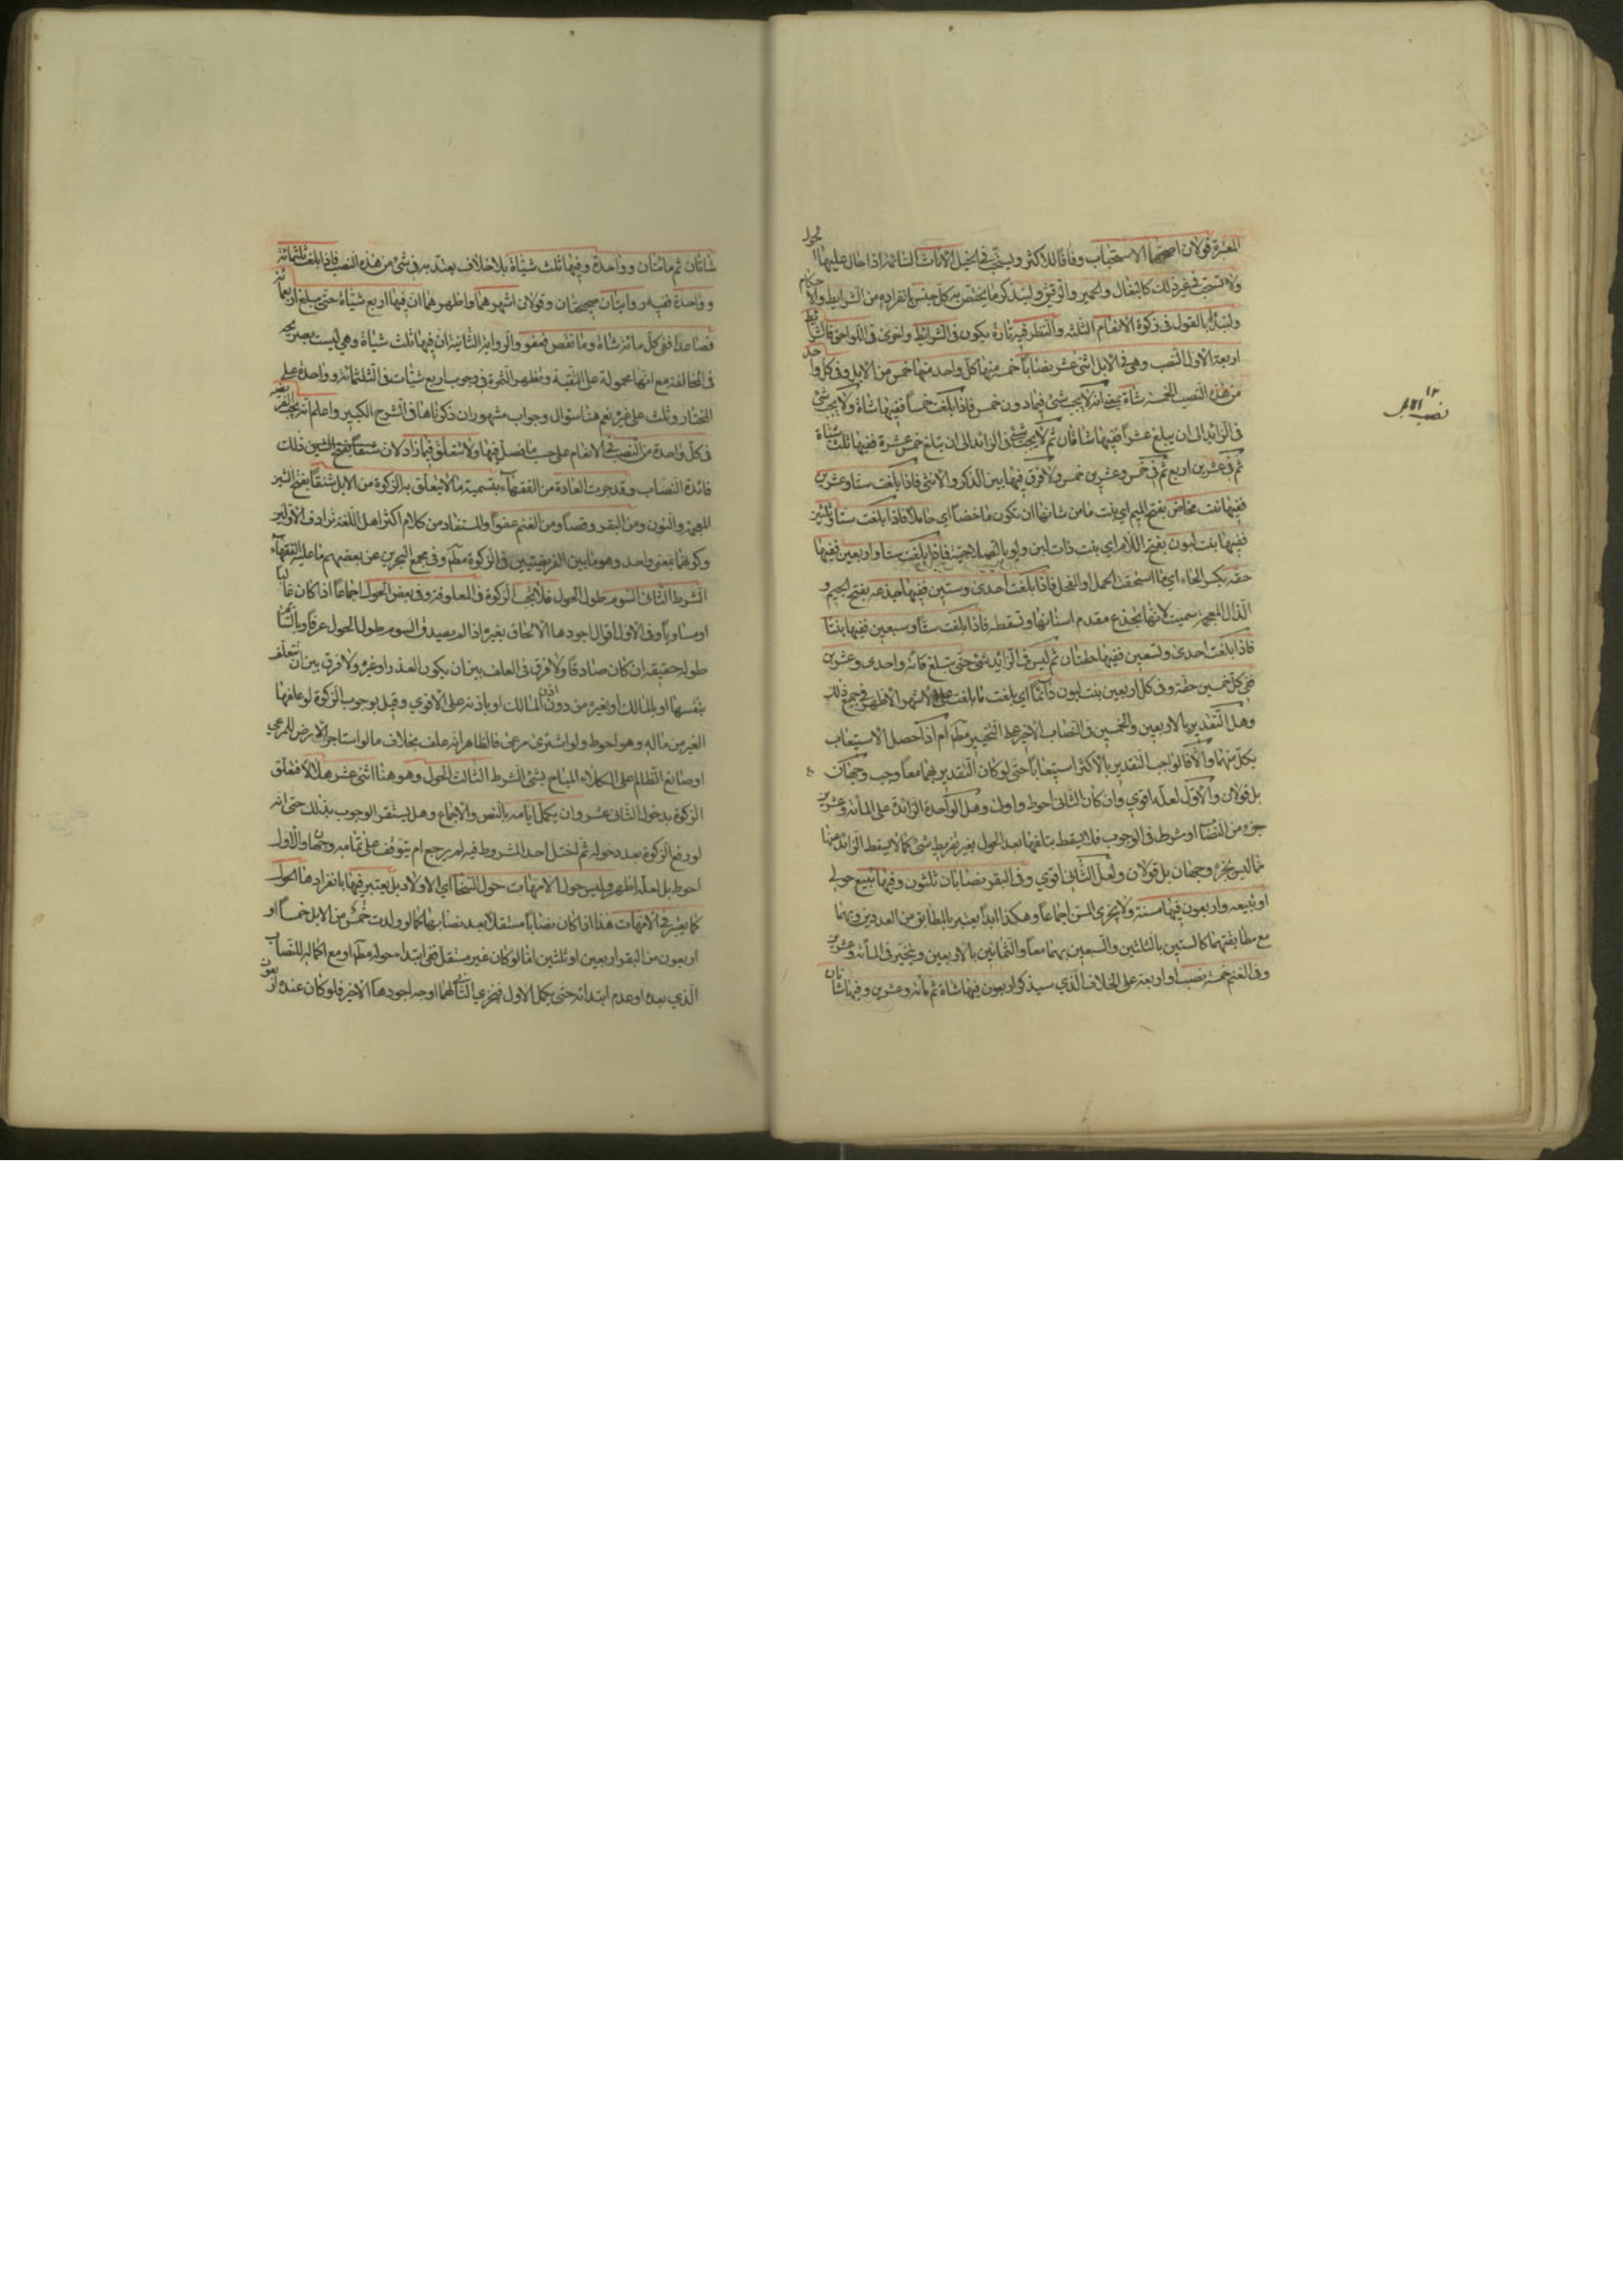 المعشرة قولان اصحهما الاستحباب وفاقا للاكثر ويستحب في الخيل الاناث السائمة اذا حال عليها الحول
ولا تستحب في غير ذلك كالبغال والحمير والرقيق ولنذكر ما يختص بكل جنس بانفراده من الشرايط والاحكام
ولنبدأ بالقول في زكوة الانعام الثلثة والنظر فيه تارة يكون في الشرائط واخرى في اللواحق فالشرائط
اربعة الاول النصب وهي في الابل اثنى عشر نصابا خمسة منها كل واحد منها خمس من الابل وفي كل واحد
من هذه النصب الخمسة شاة بمعنى انه لا يجب شئ فيما دون خمس فاذا بلغت خمسا ففيها شاة ولا يجب شئ
في الزائد الى ان يبلغ عشرا ففيها شاتان ثم لا يجب شئ في الزائد الى ان تبلغ خمس عشرة ففيها ثلث شياة
ثم في عشرين اربع ثم في خمس وعشرين خمس ولا فرق فيها بين الذكر والانثى فاذا بلغت ستا وعشرين
ففيها بنت مخاض بفتح الميم اي بنت ما من شانها ان تكون ماخضا اي حاملا فاذا بلغت ستا وثلثين
ففيها بنت لبون بفتح اللام اي بنت ذات لبن ولو بالصلاحية فاذا بلغت ستا واربعين ففيها
حقة بكسر الحاء اي ما استحقت الحمل او الفحل فاذا بلغت احدى وستين ففيها جذعة بفتح الجيم و
الذال المعجمة سميت لانها تجذع مقدم اسنانها وتسقطه فاذا بلغت ستا وسبعين ففيها بنتا
فاذا بلغت احدى وتسعين ففيها حقتان ثم ليس في الزائد شئ حتى تبلغ مائة واحدى وعشرين
ففي كل خمسين حقة وفي كل اربعين بنت لبون دائما اي بلغت ما بلغت على الاشهر الاظهر في جميع ذلك
وهل التقدير بالاربعين والخمسين في النصاب الاخير على التخيير مطم ام اذا حصل الاستيعاب
بكل منهما والا فالواجب التقدير بالاكثر استيعابا حتى لو كان التقدير بهما معا وجب وجهان
بل قولان والاول لعله اقوى وان كان الثاني احوط واولى وهل الواحدة الزائدة على المأة وعشرين
جزء من النصاب او شرط في الوجوب فلا يسقط بتلفها بعد الحول بغير تفريط شئ كما لا يسقط الزائد عنها
مما ليس بجزء وجهان بل قولان ولعل الثاني اقوى وفي البقر نصابان ثلثون وفيها تبيع حولي
او تبيعة واربعون فيها مسنة ولا يجزى المسن اجماعا وهكذا ابدا يعتبر بالمطابق من العددين فيهما
مع مطابقتهما كالستين بالثلثين والسبعين بهما معا والثمانين بالاربعين ويتخير في المأة وعشرين
وفي الغنم خمسة نصب او اربعة على الخلاف الذي سيذكر اربعون فيها شاة ثم مائة وعشرين وفيها شاتان
١٢
نصب الابل
شاتان ثم مائتان وواحدة وفيها ثلث شياة بلا خلاف يعتد به في شئ من هذه النصب فاذا بلغت ثلثمائة
وواحدة ففيه روايتان صحيحتان وقولان اشهرهما واظهرهما ان فيها اربع شياة حتى يبلغ اربعمائة
فصاعدا ففي كل مائة شاة وما نقص فعفو والرواية الثانية ان فيها ثلث شياة وهي ليست بصريحة
في المخالفة مع انها محمولة على التقية وتظهر الثمرة في وجوب اربع شيات في الثلثمائة وواحدة على
المختار وثلث على غيره نعم هنا سؤال وجواب مشهوران ذكرناها في الشرح الكبير واعلم انه تجب الفريضة
في كل واحدة من النصب في الانعام على حسب ما فصل فيها ولا تتعلق فيما زاد لان شنقا بفتح الشين ذلك
فائدة النصاب وقد جرت العادة من الفقهاء بتسمية ما لا يتعلق به الزكوة من الابل شنقا بفتح الشين
المعجمة والنون ومن البقر وقصا ومن الغنم عفوا والمستفاد من كلام اكثر اهل اللغة ترادف الاولين
وكونهما بمعنى واحد وهو ما بين الفريضتين في الزكوة مطم وفي مجمع البحرين عن بعضهم ما عليه الفقهاء
الشرط الثاني السوم طول الحول فلا يجب الزكوة في المعلوفة وفي بعض الحول اجماعا اذا كان غالبا
او مساويا وفي الاول اقوال اجودها الالحاق بغيره اذا لم يصدق السوم طول الحول عرفا وبالتسا
طوله حقيقة ان كان صادقا ولا فرق في العلف بين ان يكون العذر او غيره ولا فرق بين ان تعتلف
بنفسها او بالمالك او بغيره من دون اذن المالك او باذنه على الاقوى وقيل بوجوب الزكوة لو علفها
الغير من ماله وهو احوط ولو اشترى مرعى فالظاهر انه علف بخلاف ما لو استاجر الارض للمرعى
او صانع الظالم على الكلاء المباح بشئ الشرط الثالث الحول وهو هنا اثنى عشر هلالا فتعلق
الزكوة بدخول الثاني عشر وان يكمل ايامه بالنص والاجماع وهل يستقر الوجوب بذلك حتى انه
لو رفع الزكوة بعد دخوله ثم اختل احد الشروط فيه لم يرجع ام يتوقف على تمامه وجهان والاول
احوط بل لعله اظهر وليس حول الامهات حول السخال اي الاولاد بل يعتبر فيها بانفرادها الحول
كما يعتبر في الامهات هذا اذا كان نصابا مستقلا بعد نصابها كما لو ولدت خمس من الابل خمسا او
اربعون من البقر اربعين او ثلثين اما لو كان غير مستقل ففي ابتداء حوله مطم او مع اكماله للنصاب
الذي بعده او عدم ابتدائه حتى يكمل الاول فيجزي الثاني لهما اوجه اجودها الاخير فلو كان عنده اربعون